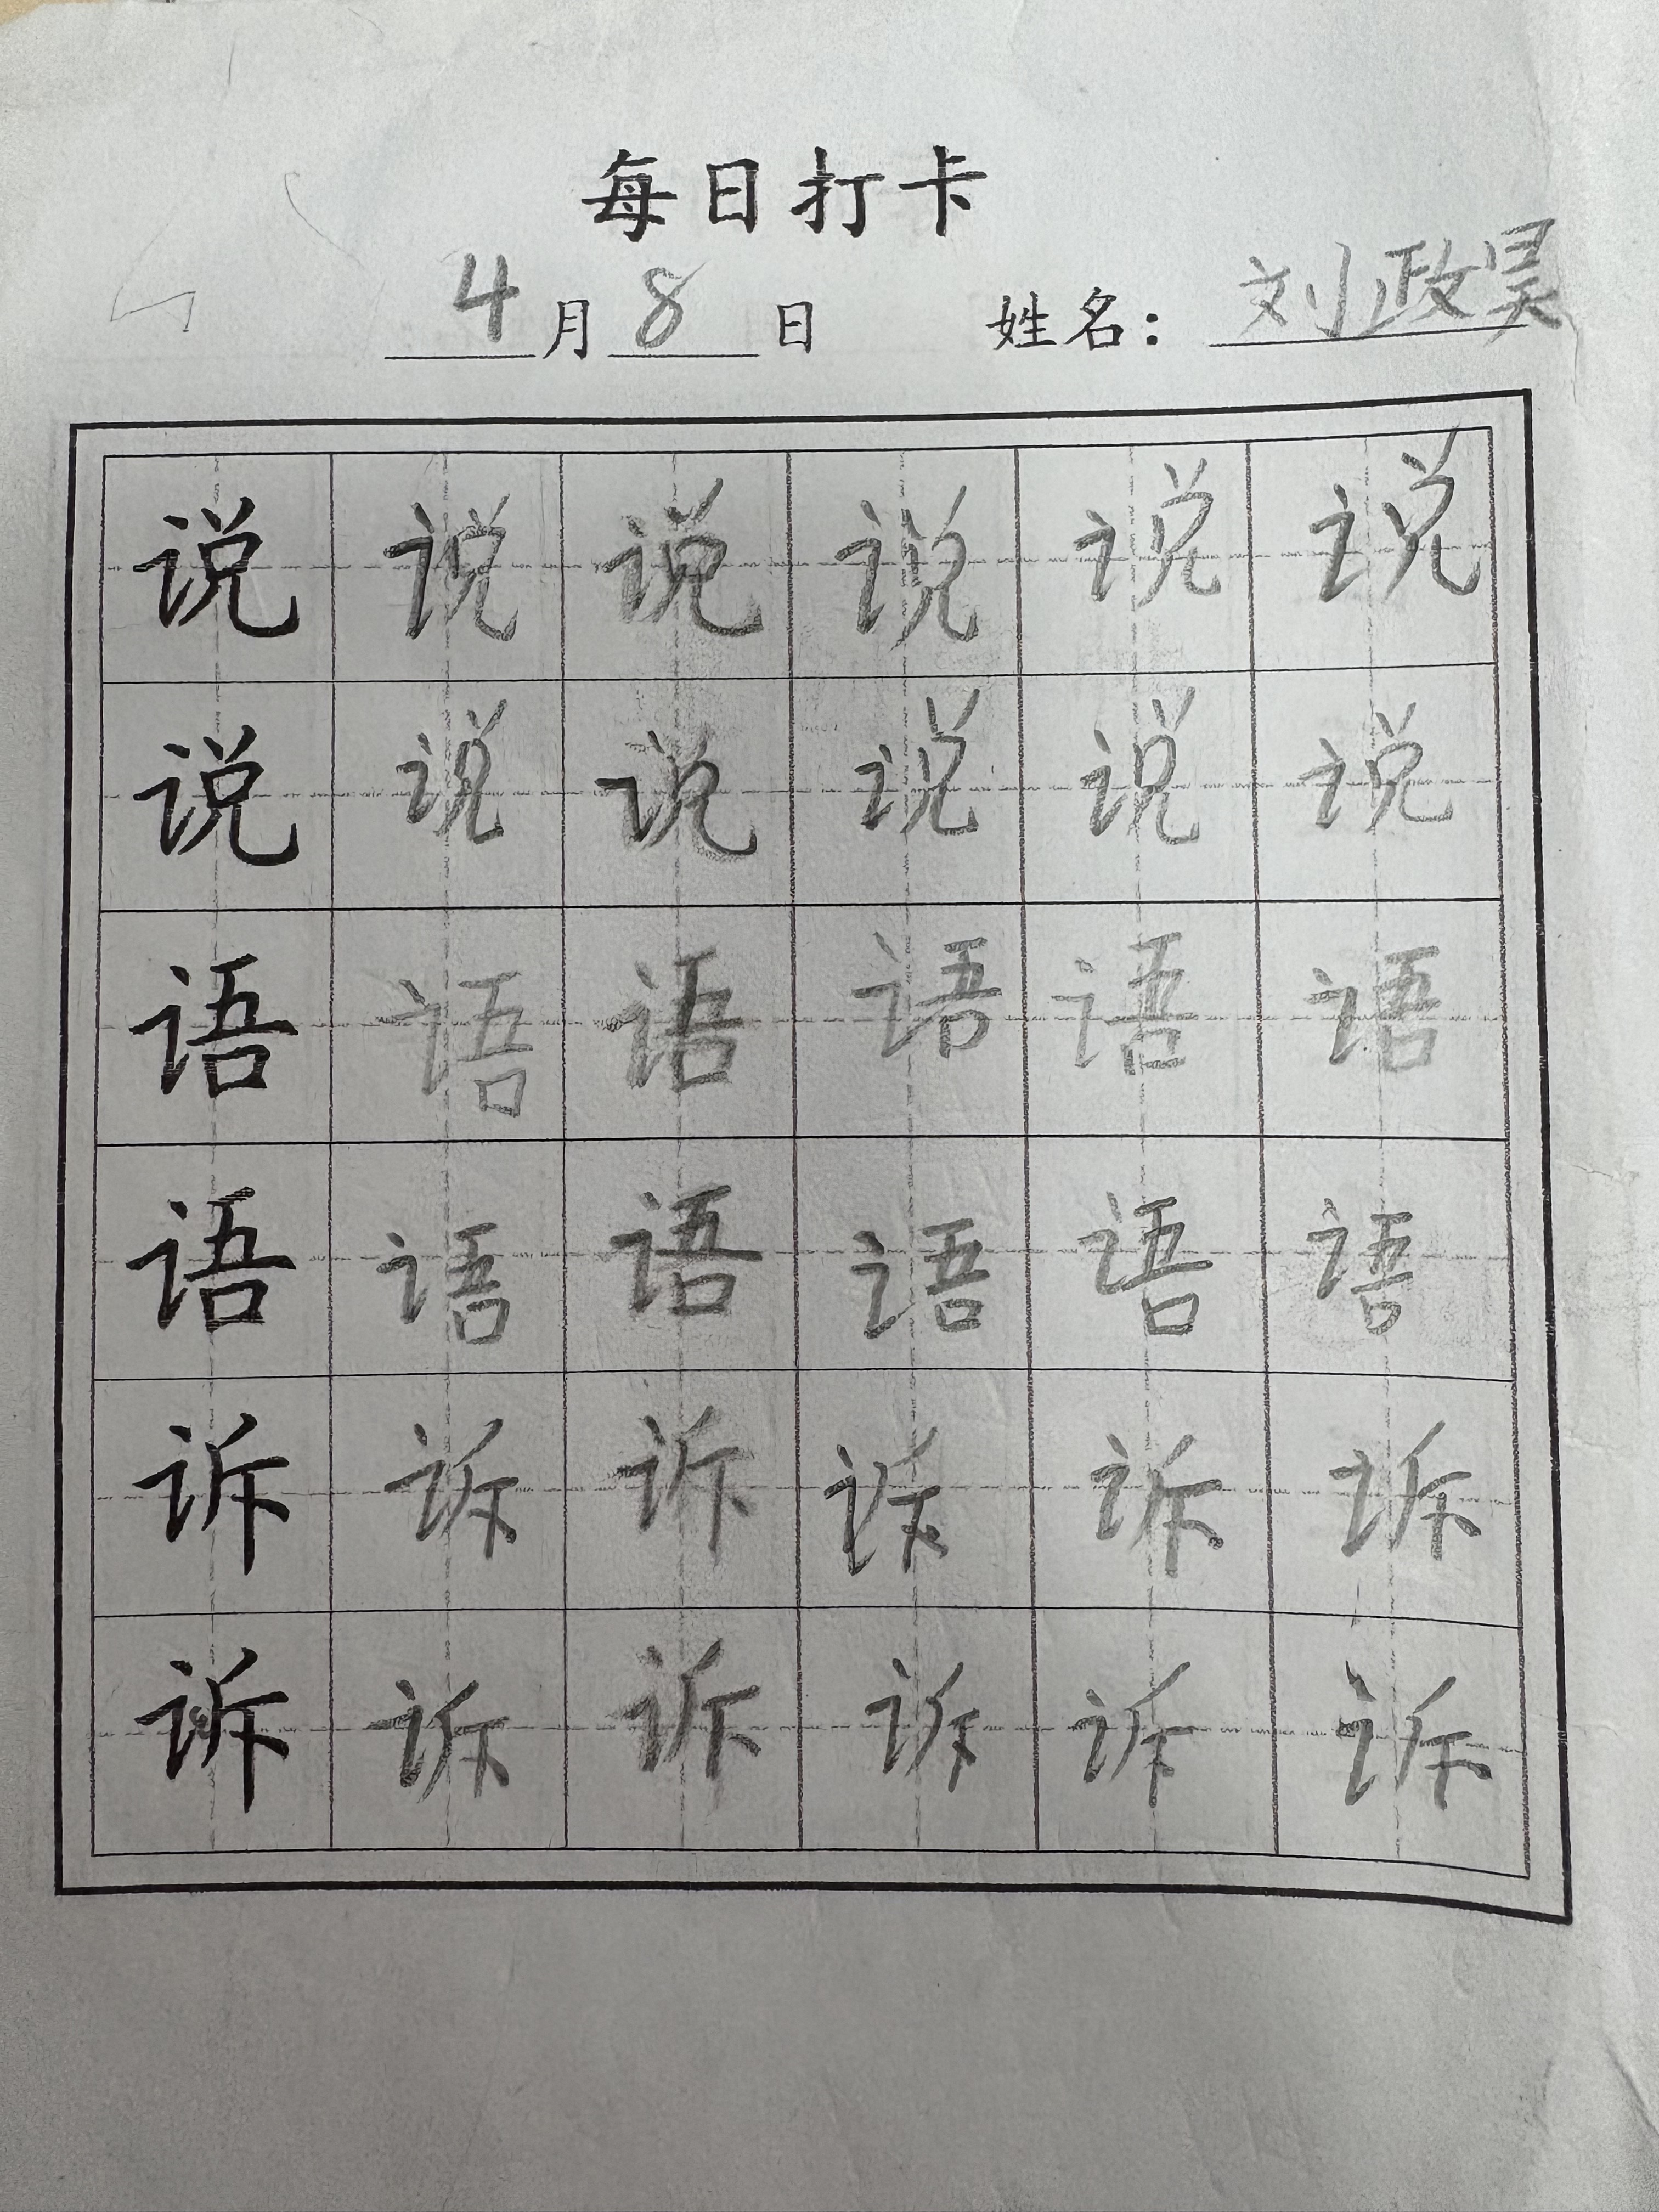 每日打卡
4月8日 姓名：刘政昊
说说说说说说
说说说说说说
语语语语语语
语语语语语语
诉诉诉诉诉诉
诉诉诉诉诉诉